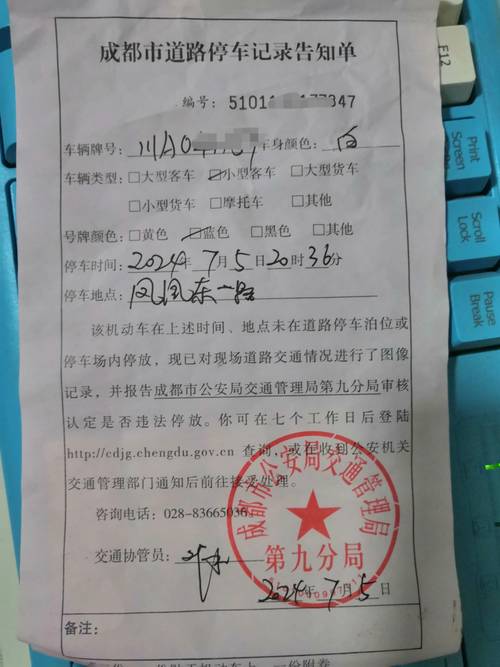 成都市道路停车记录告知单
编号：51011 177347
车辆牌号：川A0 车身颜色：白
车辆类型：□大型客车 ☑小型客车 □大型货车
□小型货车 □摩托车 □其他
号牌颜色：□黄色 ☑蓝色 □黑色 □其他
停车时间：2024年7月5日20时36分
停车地点：凤凰东一路
该机动车在上述时间、地点未在道路停车泊位或
停车场内停放，现已对现场道路交通情况进行了图像
记录，并报告成都市公安局交通管理局第九分局审核
认定是否违法停放。你可在七个工作日后登陆
http://cdjg.chengdu.gov.cn 查询，或在收到公安机关
交通管理部门通知后前往接受处理。
咨询电话：028-83665036
交通协管员：
成都市公安局交通管理局
第九分局
2024年7月5日
备注：
F12
Print
Screen
Scroll
Lock
Pause
Break